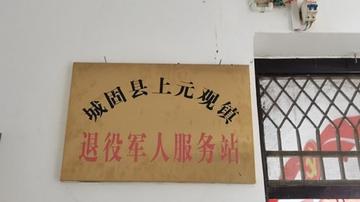 城固县上元观镇
退役军人服务站